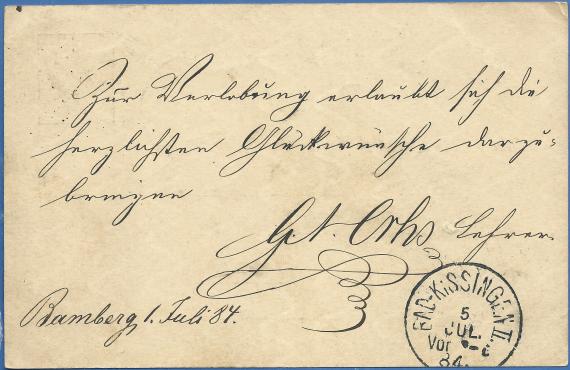 Zur Verlobung erlaubt sich die
herzlichsten Glückwünsche darzu-
bringen
Ochs Lehrer.
Bamberg 1. Juli 84.
BAD-KISSINGEN II.
5
JUL.
Vor
84.